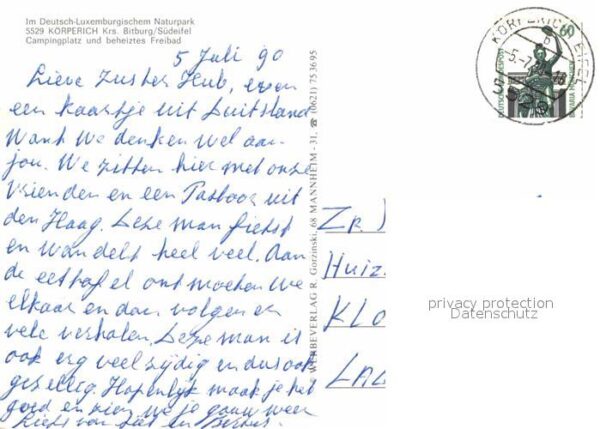 Im Deutsch-Luxemburgischem Naturpark
5529 KÖRPERICH Krs. Bitburg/Südeifel
Campingplatz und beheiztes Freibad
5 Juli 90
Lieve Zuster Hub, even
een kaartje uit Duitsland
Want we denken wel aan
jou. We zitten hier met onze
vrienden en een Pastoor uit
den Haag. Deze man fietst
en wandelt heel veel. Aan
de eettafel ontmoeten we
elkaar en dan volgen er
vele verhalen. Deze man is
ook erg veelzijdig en dus ook
gezellig. Hopenlijk maak je het
goed en zien we je gauw weer
Liefs van en
WERBEVERLAG R. Gorzinski, 68 MANNHEIM - 31, ☎ (0621) 75 36 95
Zr.
Huiz.
KLO
LAL
KÖRPERICH EIFEL
b
5.-7.
5529
60
DEUTSCHE BUNDESPOST
privacy protection
Datenschutz